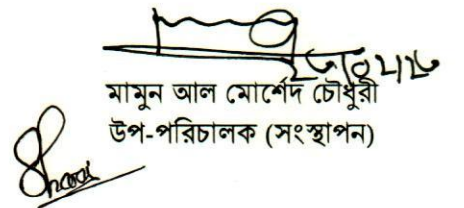 মামুন আল মোর্শেদ চৌধুরী
উপ-পরিচালক (সংস্থাপন)